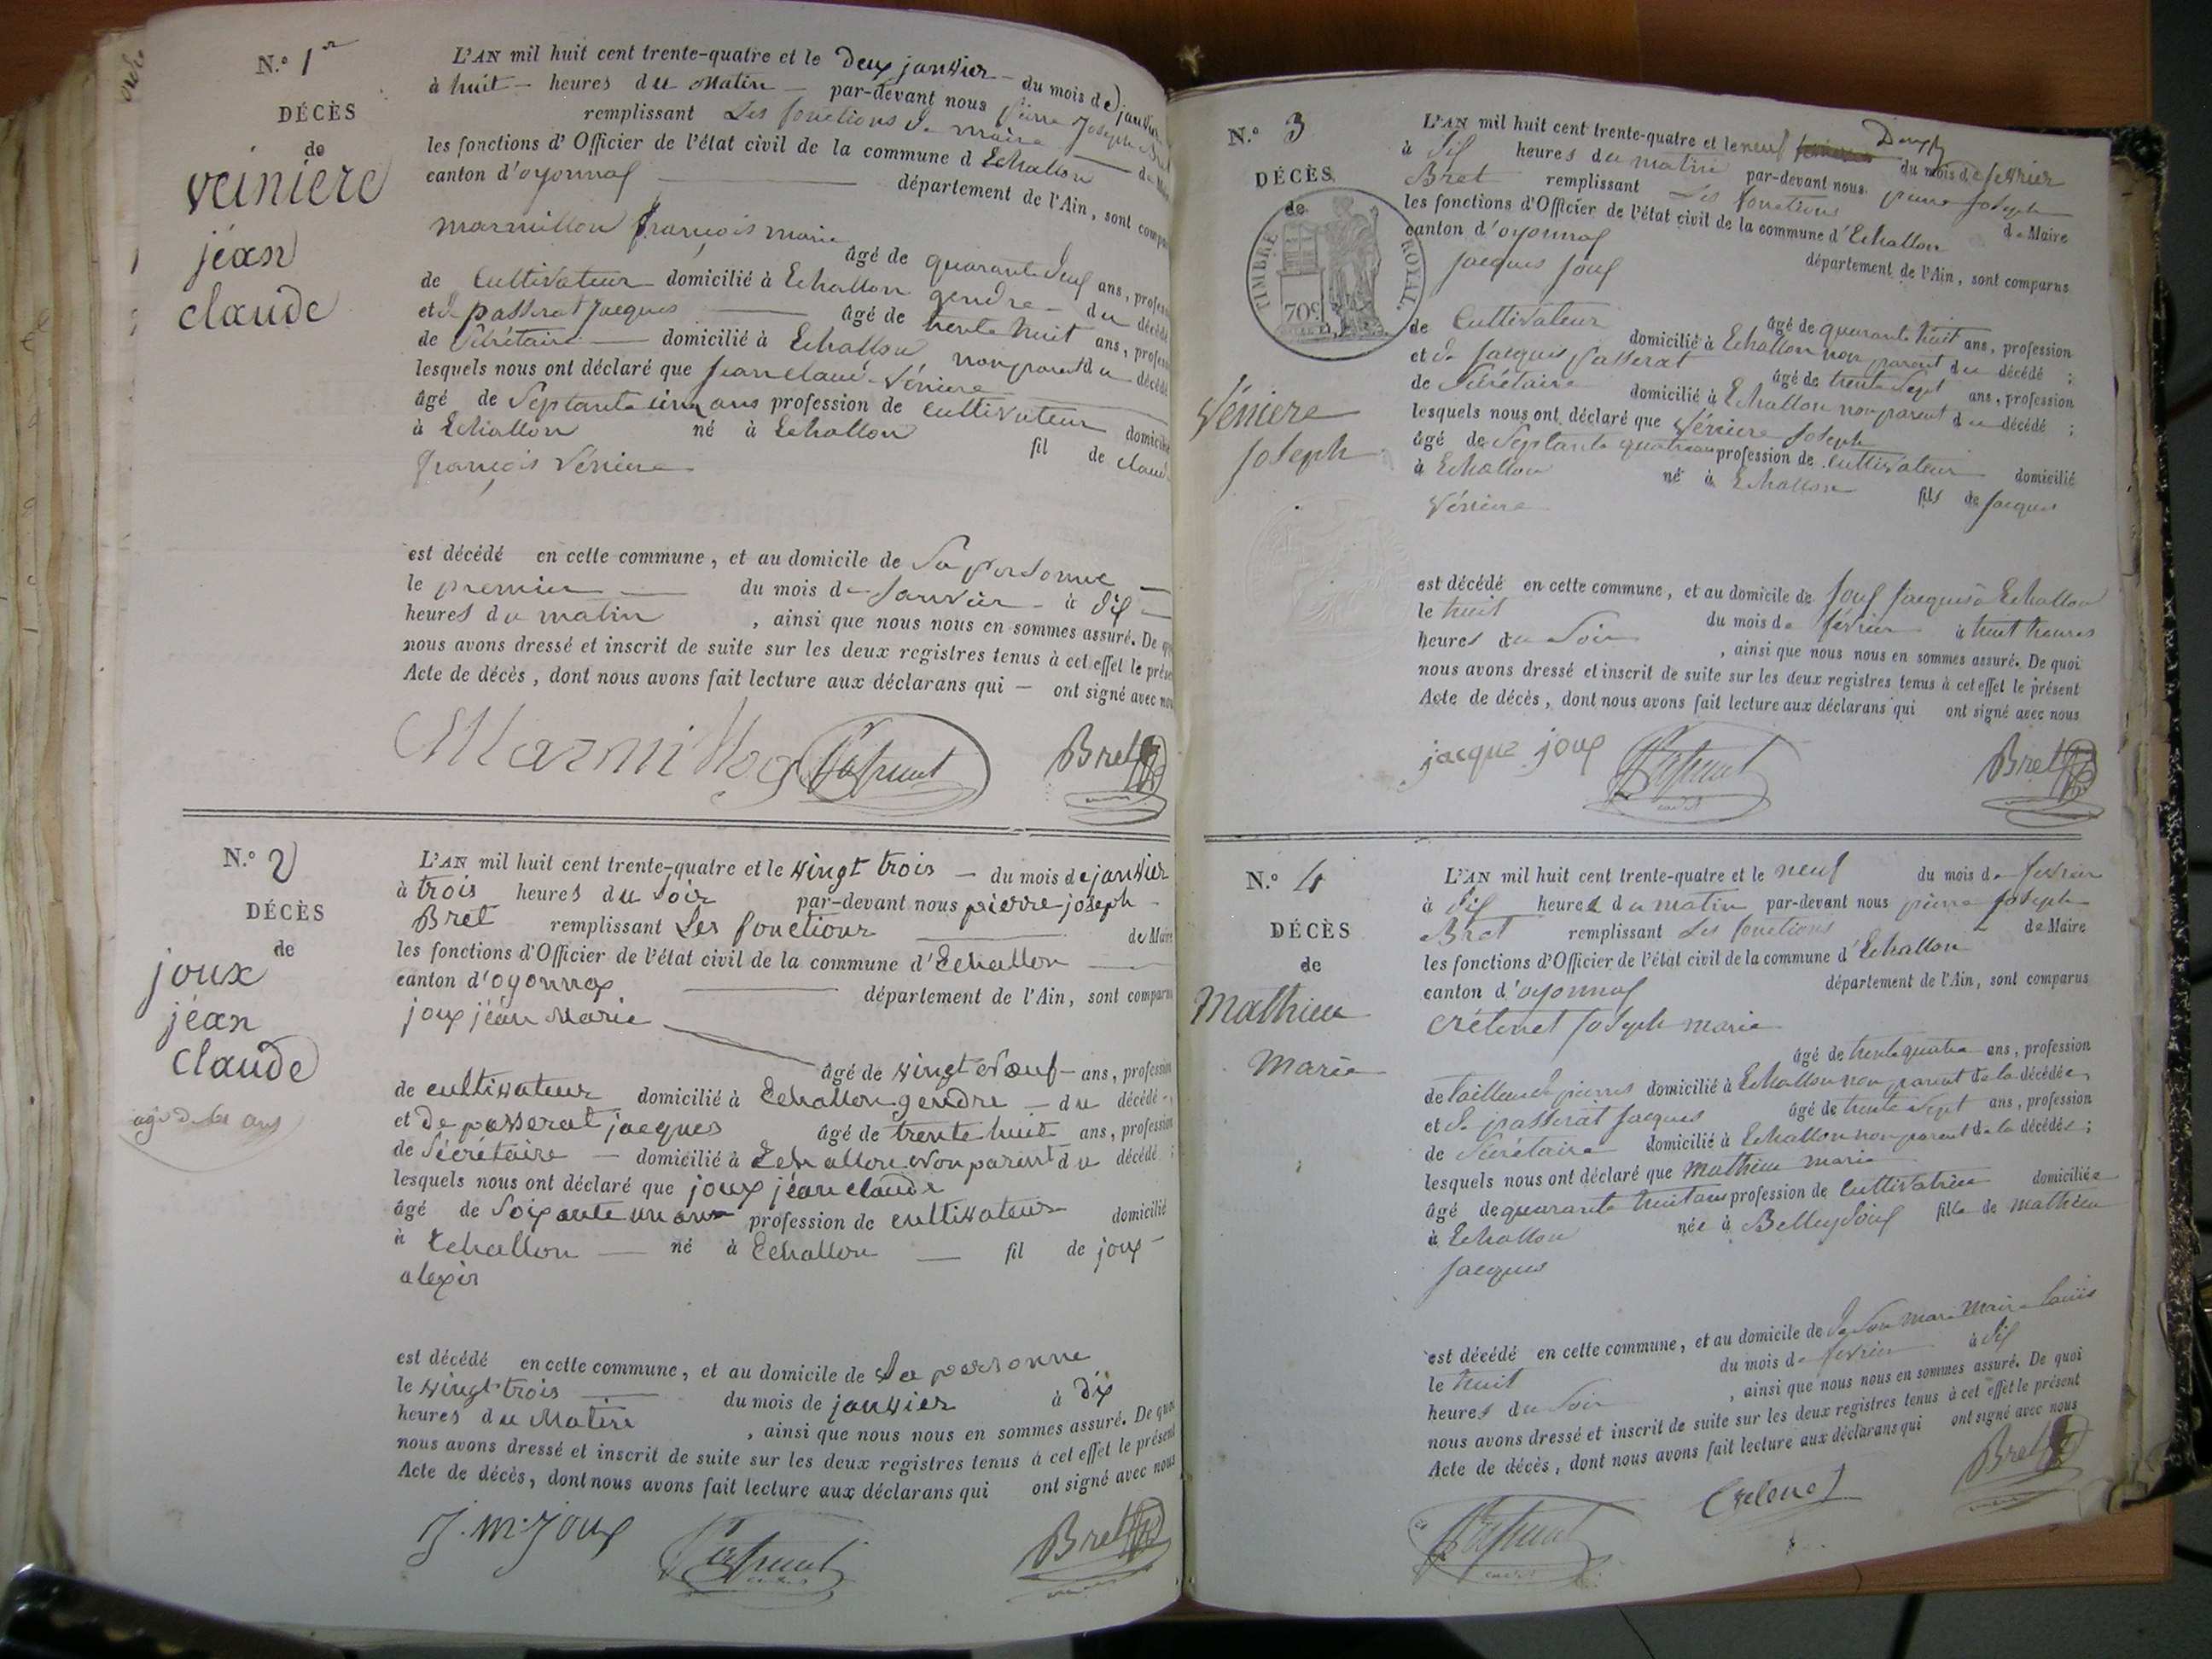 N.º 1er
DÉCÈS
de
veiniere
jéan
claude
L'AN mil huit cent trente-quatre et le deux janvier du mois de janvier
à huit heures du matin par-devant nous pierre Joseph Bret
remplissant Les fonctions de maire de Maire
les fonctions d'Officier de l'état civil de la commune d Echallon
canton d'oyonnax département de l'Ain, sont comparus
marmillon françois marie
âgé de quarante deux ans, profession
de Cultivateur domicilié à Echallon gendre du décédé
et de passerat jacques âgé de trente huit ans, profession
de Sécrétaire domicilié à Echallon non parent du décédé
lesquels nous ont déclaré que Jean claude Véniere
âgé de Septante cinq ans profession de cultivateur domicilié
à Echallon né à Echallon fil de claude
françois Véniere
est décédé en cette commune, et au domicile de Sa personne
le premier du mois de Janvier à dix
heures du matin , ainsi que nous nous en sommes assuré. De quoi
nous avons dressé et inscrit de suite sur les deux registres tenus à cet effet le présent
Acte de décès, dont nous avons fait lecture aux déclarans qui ont signé avec nous
Marmillon Passerat Bret
N.º 2
DÉCÈS
de
joux
jéan
claude
agé de 61 ans
L'AN mil huit cent trente-quatre et le vingt trois du mois de janvier
à trois heures du soir par-devant nous pierre joseph
Bret remplissant Les fonctions de Maire
les fonctions d'Officier de l'état civil de la commune d'Echallon
canton d'oyonnax département de l'Ain, sont comparus
joux jéan Marie
âgé de vingt Neuf ans, profession
de cultivateur domicilié à Echallon gendre du décédé
et de passerat jacques âgé de trente huit ans, profession
de Sécrétaire domicilié à Echallon Non parent du décédé ;
lesquels nous ont déclaré que joux jéan claude
âgé de Soixante un ans profession de cultivateur domicilié
à Echallon né à Echallon fil de joux
alexis
est décédé en cette commune, et au domicile de Sa personne
le vingt trois du mois de janvier à dix
heures du Matin , ainsi que nous nous en sommes assuré. De quoi
nous avons dressé et inscrit de suite sur les deux registres tenus à cet effet le présent
Acte de décès, dont nous avons fait lecture aux déclarans qui ont signé avec nous
J. m. Joux Passerat Bret
N.º 3
DÉCÈS
de
TIMBRE ROYAL
70c
Véniere
Joseph
L'AN mil huit cent trente-quatre et le neuf du mois de fevrier
à dix heures du matin par-devant nous pierre Joseph
Bret remplissant Les fonctions de Maire
les fonctions d'Officier de l'état civil de la commune d'Echallon
canton d'oyonnax département de l'Ain, sont comparus
Jacques Joux
âgé de quarante huit ans, profession
de Cultivateur domicilié à Echallon non parent du décédé ;
et de Jacques Passerat âgé de trente Sept ans, profession
de Sécrétaire domicilié à Echallon non parent du décédé ;
lesquels nous ont déclaré que Véniere Joseph
âgé de Septante quatre ans profession de cultivateur domicilié
à Echallon né à Echallon fils de Jacques
Véniere
est décédé en cette commune, et au domicile de Joux Jacques à Echallon
le huit du mois de février à huit heures
heures du Soir , ainsi que nous nous en sommes assuré. De quoi
nous avons dressé et inscrit de suite sur les deux registres tenus à cet effet le présent
Acte de décès, dont nous avons fait lecture aux déclarans qui ont signé avec nous
jacque joux Passerat Bret
N.º 4
DÉCÈS
de
Mathieu
Marie
L'AN mil huit cent trente-quatre et le neuf du mois de fevrier
à dix heures du matin par-devant nous pierre Joseph
Bret remplissant Les fonctions de Maire
les fonctions d'Officier de l'état civil de la commune d'Echallon
canton d'oyonnax département de l'Ain, sont comparus
Crétenet Joseph marie
âgé de trente quatre ans, profession
de tailleur de pierres domicilié à Echallon non parent de la décédée,
et de passerat Jacques âgé de trente Sept ans, profession
de Sécrétaire domicilié à Echallon non parent de la décédée ;
lesquels nous ont déclaré que Mathieu marie
âgé de quarante huit ans profession de Cultivatrice domiciliée
à Echallon née à Belleydoux fille de mathieu
Jacques
est décédé en cette commune, et au domicile de de Son mari Louis
le huit du mois de fevrier à dix
heures du Soir , ainsi que nous nous en sommes assuré. De quoi
nous avons dressé et inscrit de suite sur les deux registres tenus à cet effet le présent
Acte de décès, dont nous avons fait lecture aux déclarans qui ont signé avec nous
Passerat Cretenet Bret